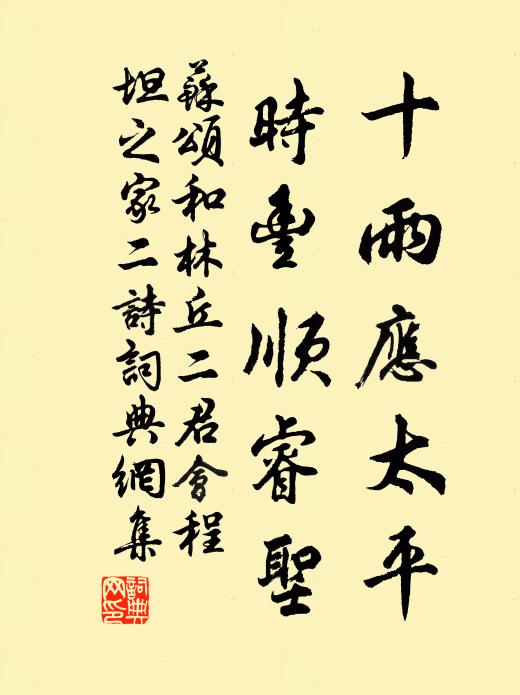 十雨應太平
時豐順睿聖
蘇頌和林丘二君會程
坦之家二詩詞典網集
詞典网印